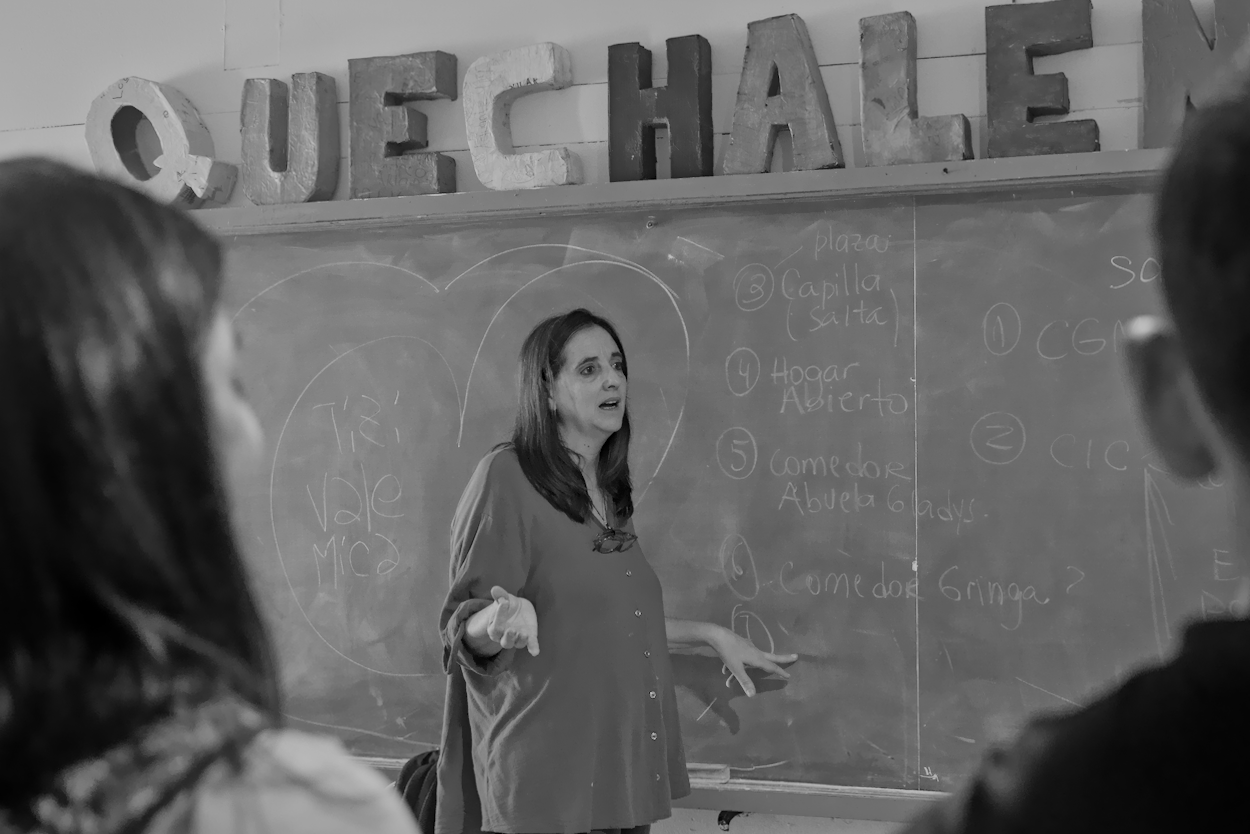 QUECHALEN
Tizi
Vale
Mica
plaza
③ Capilla
(Salta)
④ Hogar
Abierto
⑤ comedor
Abuela Gladys.
⑥ Comedor Gringa?
⑦
SO
① CGM
② CIC